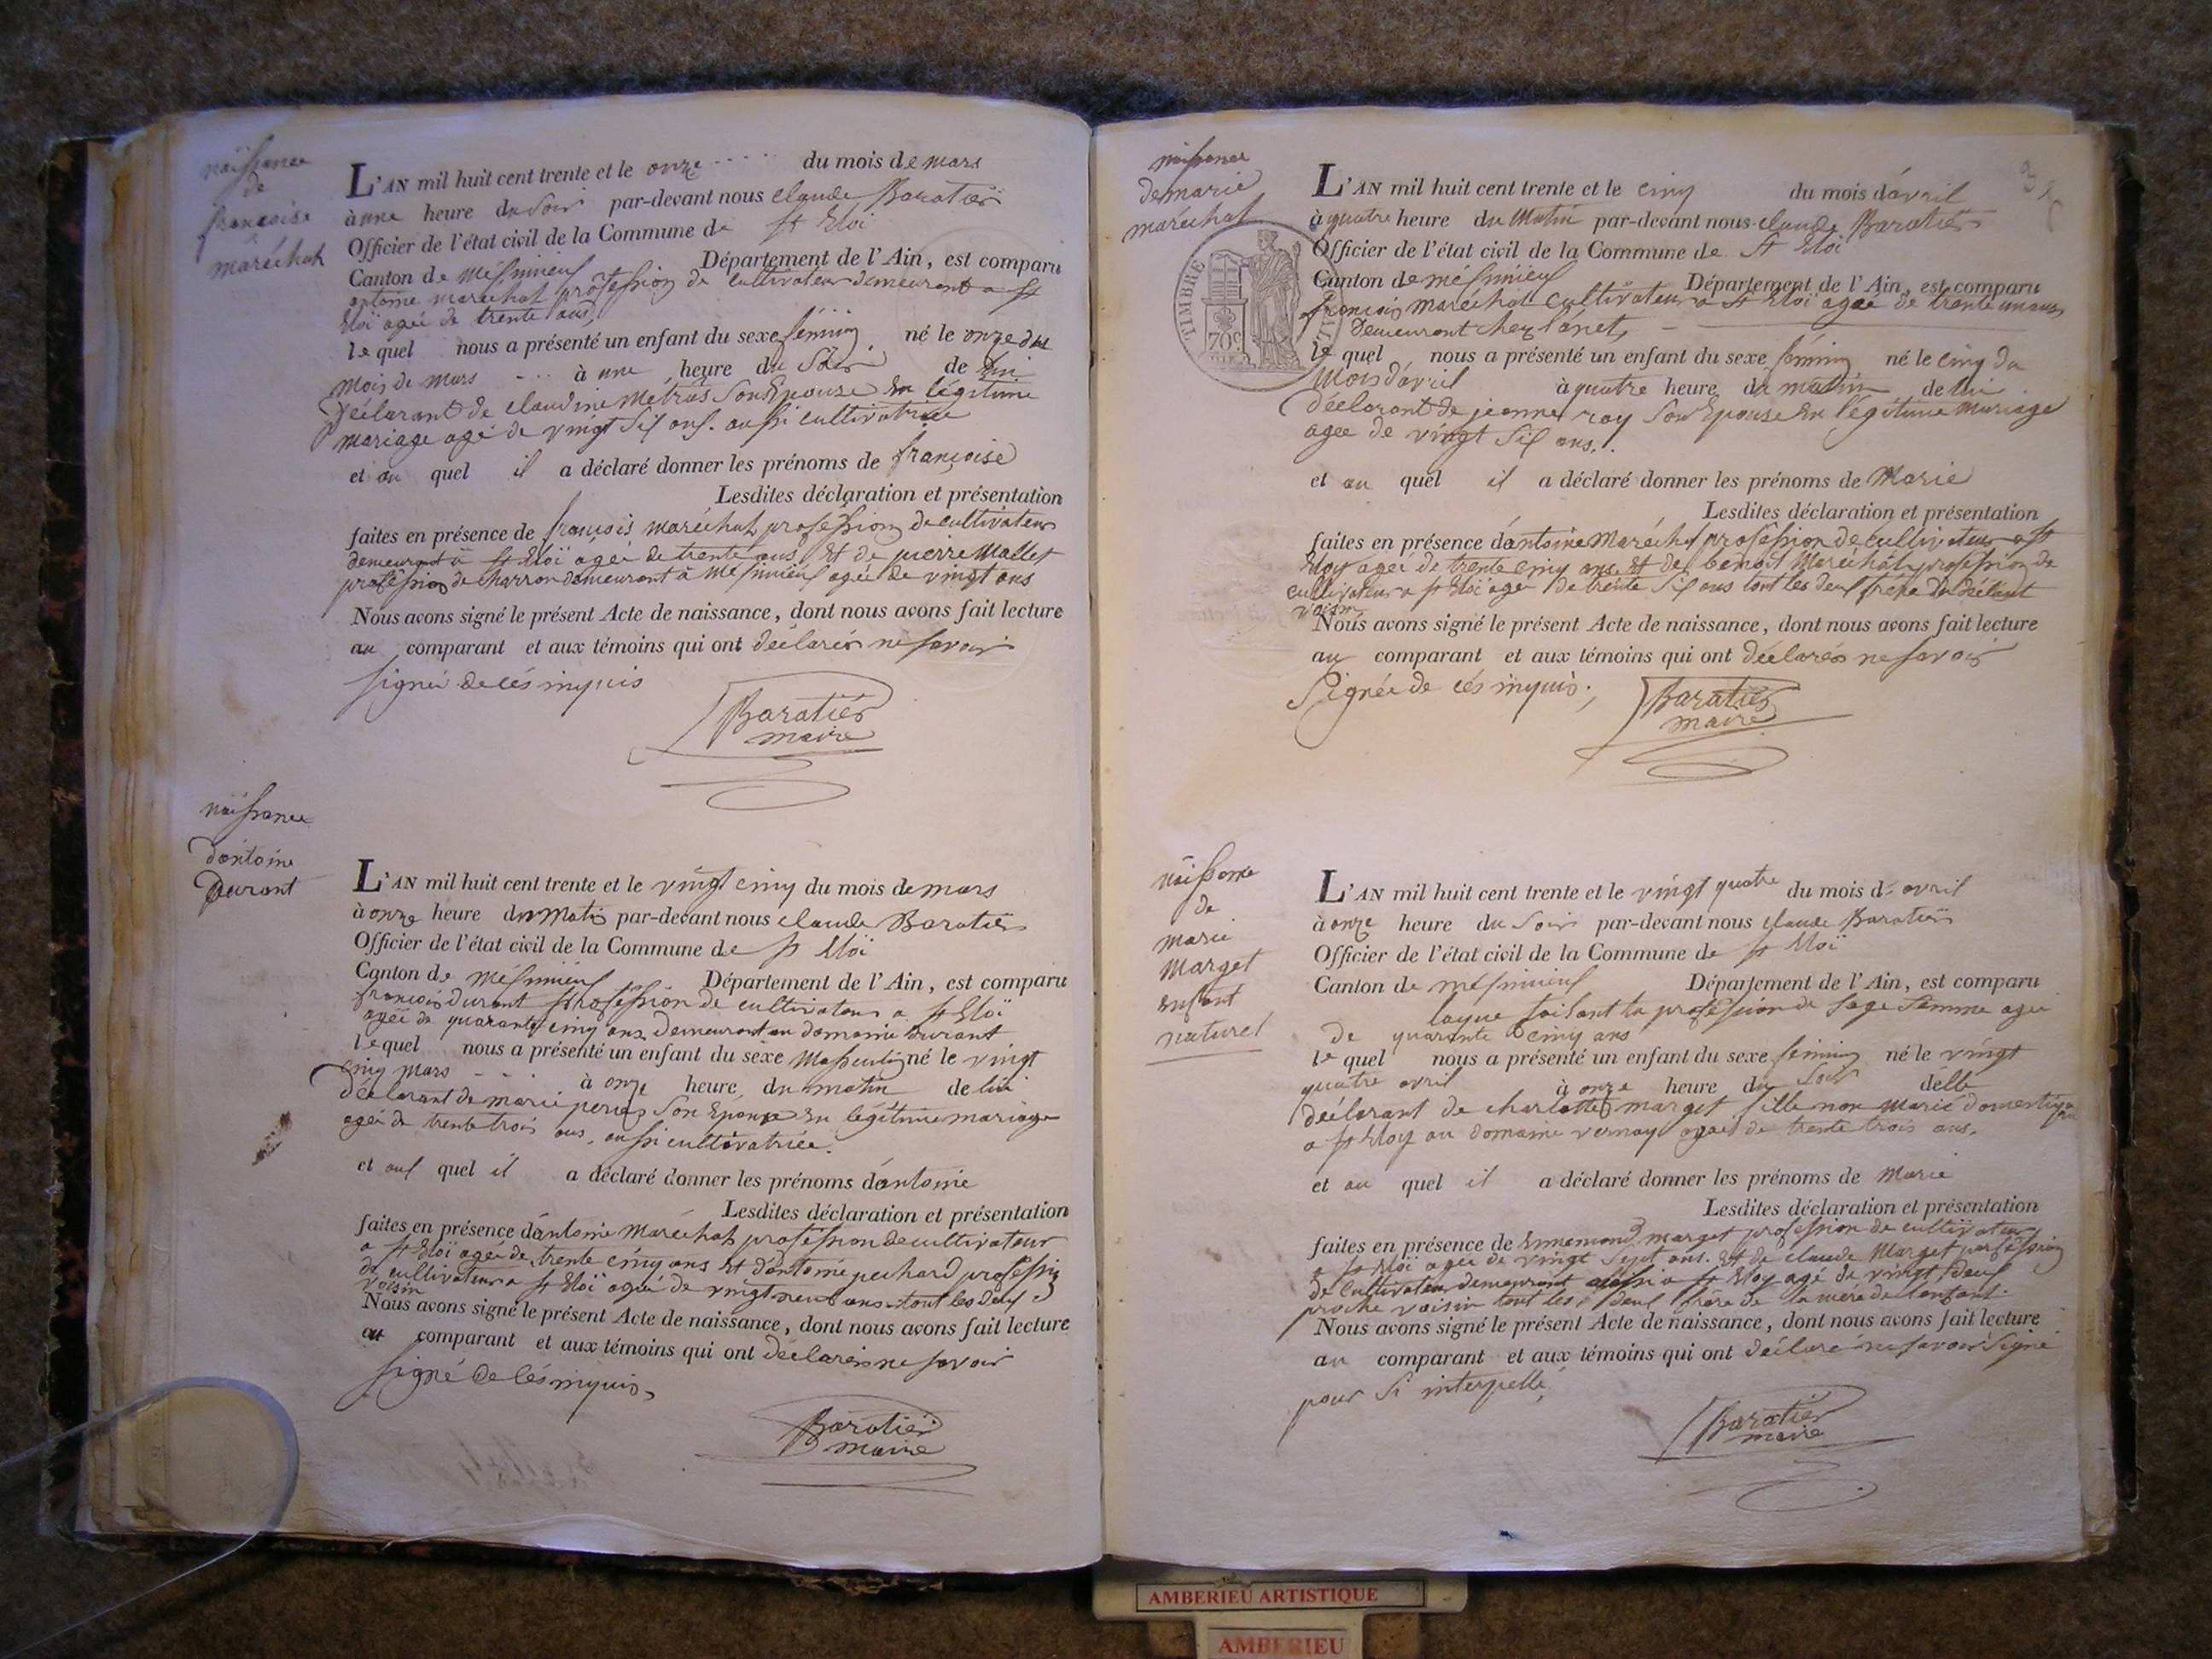 naissance
de
françoise
maréchal
L'AN mil huit cent trente et le onze du mois de mars
à une heure du soir par-devant nous claude Baratier
Officier de l'état civil de la Commune de st Eloi
Canton de Méximieux Département de l'Ain, est comparu
antoine marechal profession de cultivateur demeurant a st
Eloi agée de trente ans,
le quel nous a présenté un enfant du sexe féminin né le onze du
mois de mars à une heure du soir de lui
Déclarant de claudine Métras son Epouse En légitime
mariage agé de vingt six ans. aussi cultivatrice
et au quel il a déclaré donner les prénoms de françoise
Lesdites déclaration et présentation
faites en présence de françois maréchal, profession de cultivateur
demeurant à st Eloï ágée de trente ans Et de pierre Mallet
profession de charron demeurant à Méximieux agée de vingt ans
Nous avons signé le présent Acte de naissance, dont nous avons fait lecture
au comparant et aux témoins qui ont déclarés ne savoir
signée de cés inquis
Baratier
maire
naissance
d'antoine
Durant
L'AN mil huit cent trente et le vingt cinq du mois de mars
à onze heure du Matin par-devant nous claude Baratier
Officier de l'état civil de la Commune de st Eloï
Canton de Méximieux Département de l'Ain, est comparu
françois durant profession de cultivateur a st Eloï
agée de quarante cinq ans demeurant au domaine durant
le quel nous a présenté un enfant du sexe Masculin né le vingt
cinq mars à onze heure du matin de lui
déclarant de marie son Epouse En legitime mariage
agée de trente trois ans, aussi cultivatrice.
et aux quel il a déclaré donner les prénoms d'antoine
Lesdites déclaration et présentation
faites en présence d'antoine Maréchal profession de cultivateur
a st Eloï agée de trente cinq ans Et d'antoine pechard profession
de cultivateur a st Eloï agée de vingt neuf ans tout les deux
voisin
Nous avons signé le présent Acte de naissance, dont nous avons fait lecture
au comparant et aux témoins qui ont déclarés ne savoir
signé de cés inquis,
Baratier
maire
naissance
de marie
maréchal
TIMBRE
70c
L'AN mil huit cent trente et le cinq du mois d'avril
à quatre heure du Matin par-devant nous claude Baratier
Officier de l'état civil de la Commune de st Eloi
Canton de méximieux Département de l'Ain, est comparu
françois maréchal cultivateur a st Eloï agée de trente un ans
Demeurant chez
le quel nous a présenté un enfant du sexe féminin né le cinq du
mois d'avril à quatre heure du matin de lui
déclarant de jeanne roy son Epouse En légitime mariage
agee de vingt six ans.
et au quel il a déclaré donner les prénoms de Marie
Lesdites déclaration et présentation
faites en présence d'antoine Maréchal profession de cultivateur a st
Eloy agée de trente cinq ans Et de benoit Maréchal profession de
cultivateur a st Eloï agée de trente six ans tout les deux frère Du
voisin
Nous avons signé le présent Acte de naissance, dont nous avons fait lecture
au comparant et aux témoins qui ont déclarés ne savoir
signée de cés inquis.
Baratier
maire
naissance
de
marie
Marget
enfant
naturel
L'AN mil huit cent trente et le vingt quatre du mois d' avril
à onze heure du soir par-devant nous claude Baratier
Officier de l'état civil de la Commune de st Eloï
Canton de méximieux Département de l'Ain, est comparu
faisant la profession de sage femme agée
de quarante cinq ans
le quel nous a présenté un enfant du sexe féminin né le vingt
quatre avril à onze heure du soir d'elle
déclarant de charlotte marget fille non marié domestique
a st Eloy au domaine vernay agée de trente trois ans.
et au quel il a déclaré donner les prénoms de Marie
Lesdites déclaration et présentation
faites en présence de Ennemond marget profession de cultivateur
a st Eloï agée de vingt sept ans. Et de claude Marget profession
de cultivateur demeurant aussi a st Eloy agé de vingt deux
proche voisin tout les deux frère de la mère de l'enfant.
Nous avons signé le présent Acte de naissance, dont nous avons fait lecture
au comparant et aux témoins qui ont déclaré ne savoir signé
pour si interpellé,
Baratier
maire
AMBERIEU ARTISTIQUE
AMBERIEU